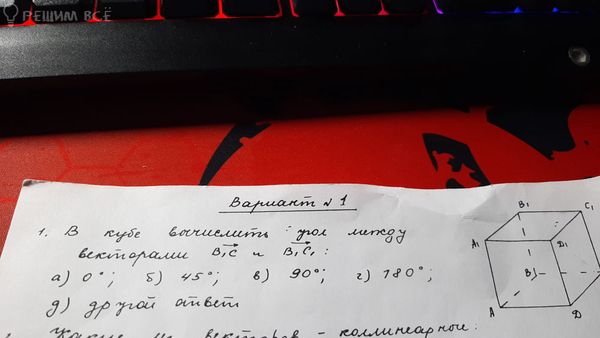 РЕШИМ ВСЁ
Вариант №1
1. В кубе вычислить угол между
векторами B₁C и B₁C₁:
а) 0°; б) 45°; в) 90°; г) 180°;
д) другой ответ
Какие из векторов - коллинеарные:
B₁
C₁
A₁
D₁
B
A
D